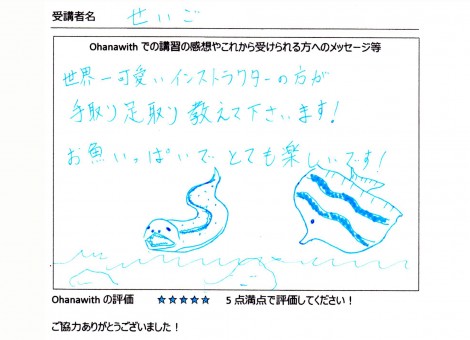 受講者名 せいご
Ohanawith での講習の感想やこれから受けられる方へのメッセージ等
世界一可愛いインストラクターの方が
手取り足取り教えて下さいます!
お魚いっぱいでとても楽しいです!
Ohanawith の評価 ★★★★★ 5 点満点で評価してください!
ご協力ありがとうございました!